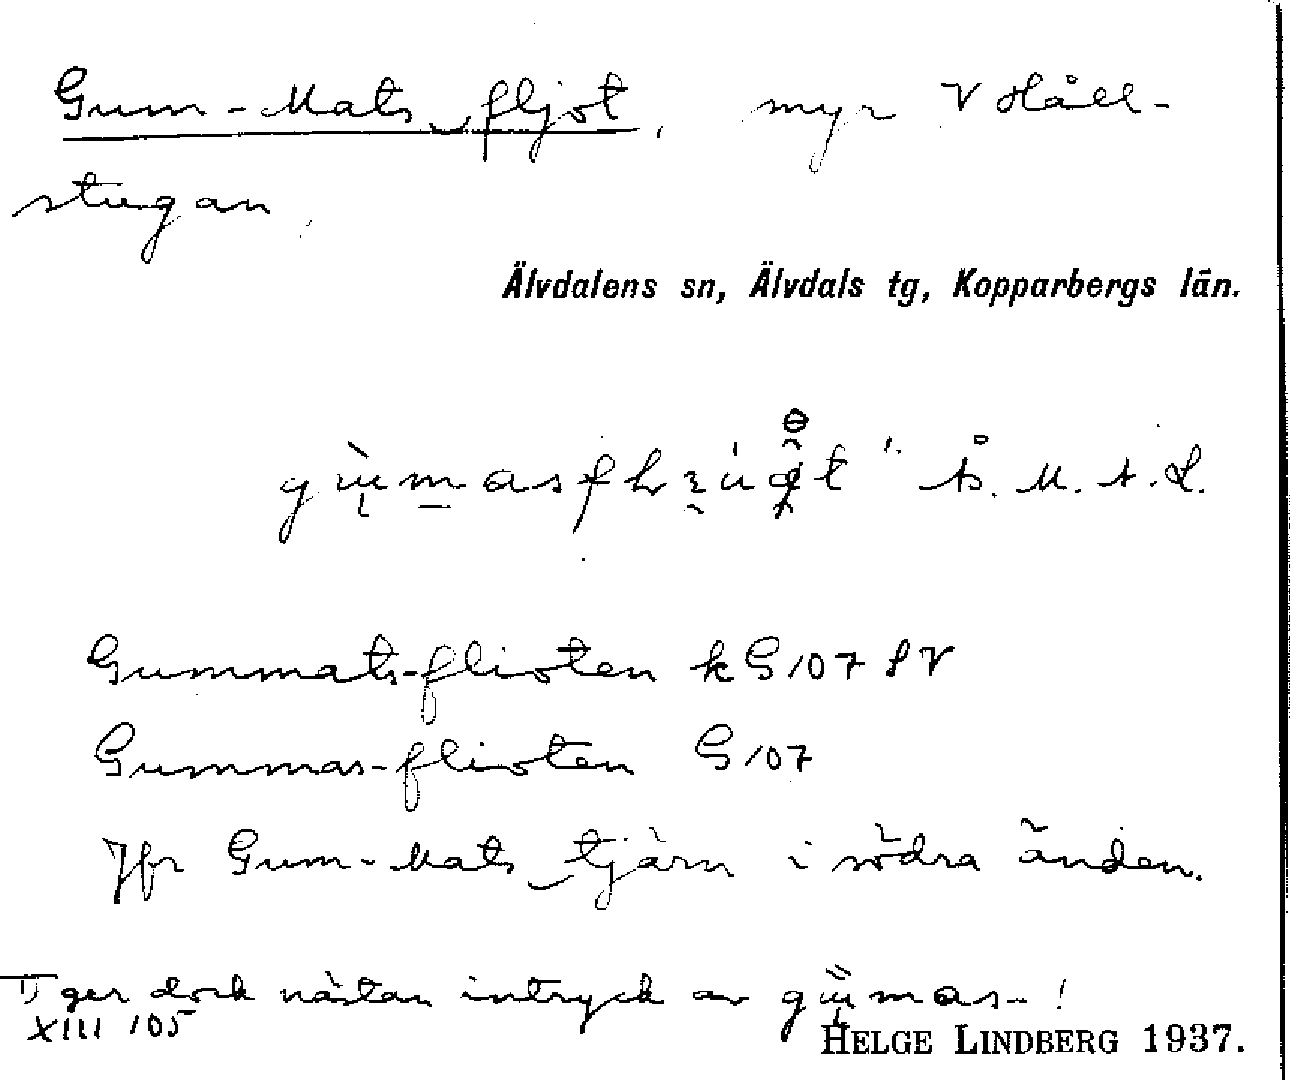 Gum-Mats fljot, myr V Håll-
stugan.
Älvdalens sn, Älvdals tg, Kopparbergs län.
Å. M. A. L.
Gummats-flioten kG 107 SV
Gummas-flioten G 107
Jfr Gum-Mats tjärn i södra änden.
1) ger dock nästan intryck av
XIII 105
HELGE LINDBERG 1937.